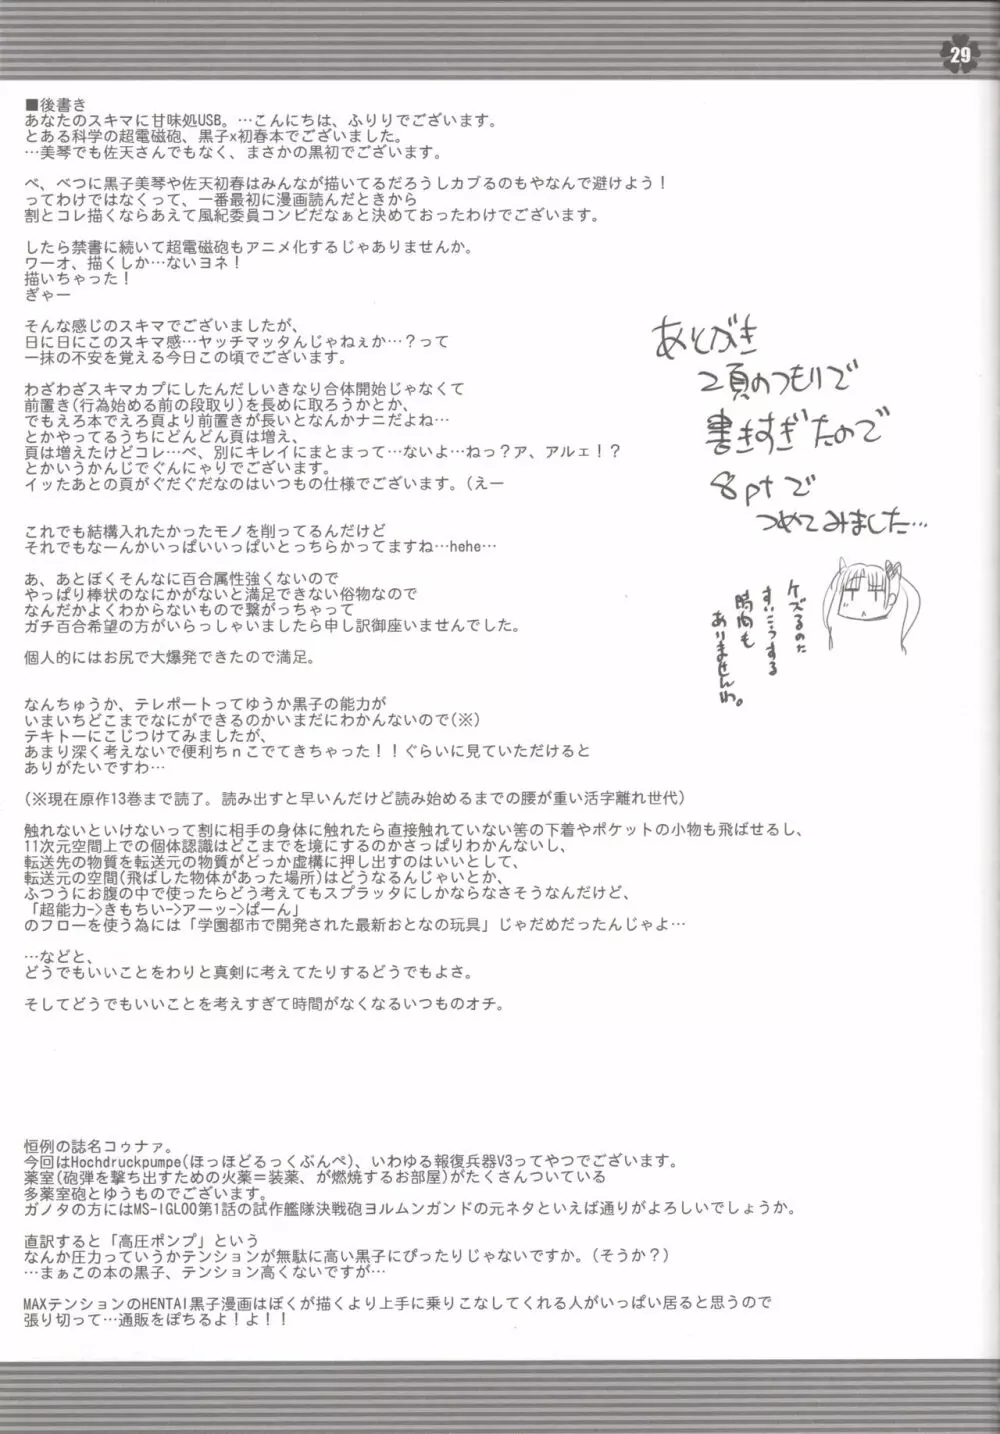 29
■後書き
あなたのスキマに甘味処USB。…こんにちは、ふりりでございます。
とある科学の超電磁砲、黒子x初春本でございました。
…美琴でも佐天さんでもなく、まさかの黒初でございます。
べ、べつに黒子美琴や佐天初春はみんなが描いてるだろうしカブるのもやなんで避けよう！
ってわけではなくって、一番最初に漫画読んだときから
割とコレ描くならあえて風紀委員コンビだなぁと決めておったわけでございます。
したら禁書に続いて超電磁砲もアニメ化するじゃありませんか。
ワーオ、描くしか…ないヨネ！
描いちゃった！
ぎゃー
そんな感じのスキマでございましたが、
日に日にこのスキマ感…ヤッチマッタんじゃねぇか…？って
一抹の不安を覚える今日この頃でございます。
わざわざスキマカプにしたんだしいきなり合体開始じゃなくて
前置き(行為始める前の段取り)を長めに取ろうかとか、
でもえろ本でえろ頁より前置きが長いとなんかナニだよね…
とかやってるうちにどんどん頁は増え、
頁は増えたけどコレ…べ、別にキレイにまとまって…ないよ…ねっ？ア、アルェ！？
とかいうかんじでぐんにゃりでございます。
イッたあとの頁がぐだぐだなのはいつもの仕様でございます。(えー
これでも結構入れたかったモノを削ってるんだけど
それでもなーんかいっぱいいっぱいとっちらかってますね…hehe…
あ、あとぼくそんなに百合属性強くないので
やっぱり棒状のなにかがないと満足できない俗物なので
なんだかよくわからないもので繋がっちゃって
ガチ百合希望の方がいらっしゃいましたら申し訳御座いませんでした。
個人的にはお尻で大爆発できたので満足。
なんちゅうか、テレポートってゆうか黒子の能力が
いまいちどこまでなにができるのかいまだにわかんないので(※)
テキトーにこじつけてみましたが、
あまり深く考えないで便利ちｎこでてきちゃった！！ぐらいに見ていただけると
ありがたいですわ…
(※現在原作13巻まで読了。読み出すと早いんだけど読み始めるまでの腰が重い活字離れ世代)
触れないといけないって割に相手の身体に触れたら直接触れていない筈の下着やポケットの小物も飛ばせるし、
11次元空間上での個体認識はどこまでを境にするのかさっぱりわかんないし、
転送先の物質を転送元の物質がどっか虚構に押し出すのはいいとして、
転送元の空間(飛ばした物体があった場所)はどうなるんじゃいとか、
ふつうにお腹の中で使ったらどう考えてもスプラッタにしかならなさそうなんだけど、
「超能力->きもちい->アーッ->ぱーん」
のフローを使う為には「学園都市で開発された最新おとなの玩具」じゃだめだったんじゃよ…
…などと、
どうでもいいことをわりと真剣に考えてたりするどうでもよさ。
そしてどうでもいいことを考えすぎて時間がなくなるいつものオチ。
恒例の誌名コゥナァ。
今回はHochdruckpumpe(ほっほどるっくぷんぺ)、いわゆる報復兵器V3ってやつでございます。
薬室(砲弾を撃ち出すための火薬＝装薬、が燃焼するお部屋)がたくさんついている
多薬室砲とゆうものでございます。
ガノタの方にはMS-IGLOO第1話の試作艦隊決戦砲ヨルムンガンドの元ネタといえば通りがよろしいでしょうか。
直訳すると「高圧ポンプ」という
なんか圧力っていうかテンションが無駄に高い黒子にぴったりじゃないですか。(そうか？)
…まぁこの本の黒子、テンション高くないですが…
MAXテンションのHENTAI黒子漫画はぼくが描くより上手に乗りこなしてくれる人がいっぱい居ると思うので
張り切って…通販をぽちるよ！よ！！
あとがき
2頁のつもりで
書きすぎたので
8ptで
つめてみました…
ケズるのた
すいこうする
時間も
ありませんわ。